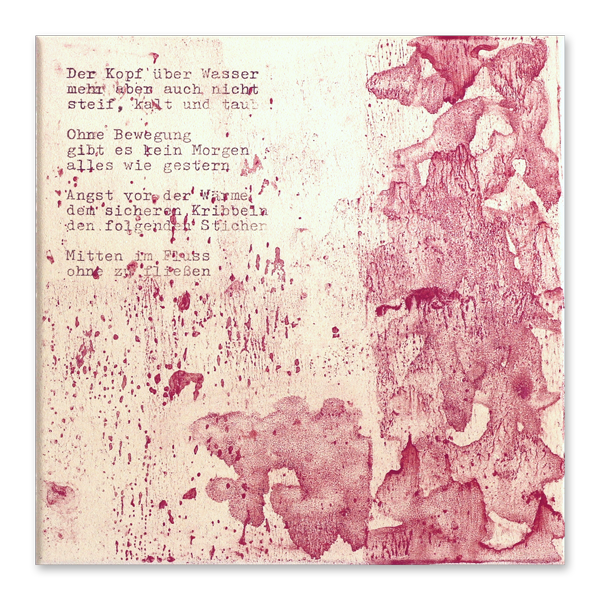 Der Kopf über Wasser
mehr aber auch nicht
steif, kalt und taub
Ohne Bewegung
gibt es kein Morgen
alles wie gestern
Angst vor der Wärme
dem sicheren Kribbeln
den folgenden Stichen
Mitten im Fluss
ohne zu fließen